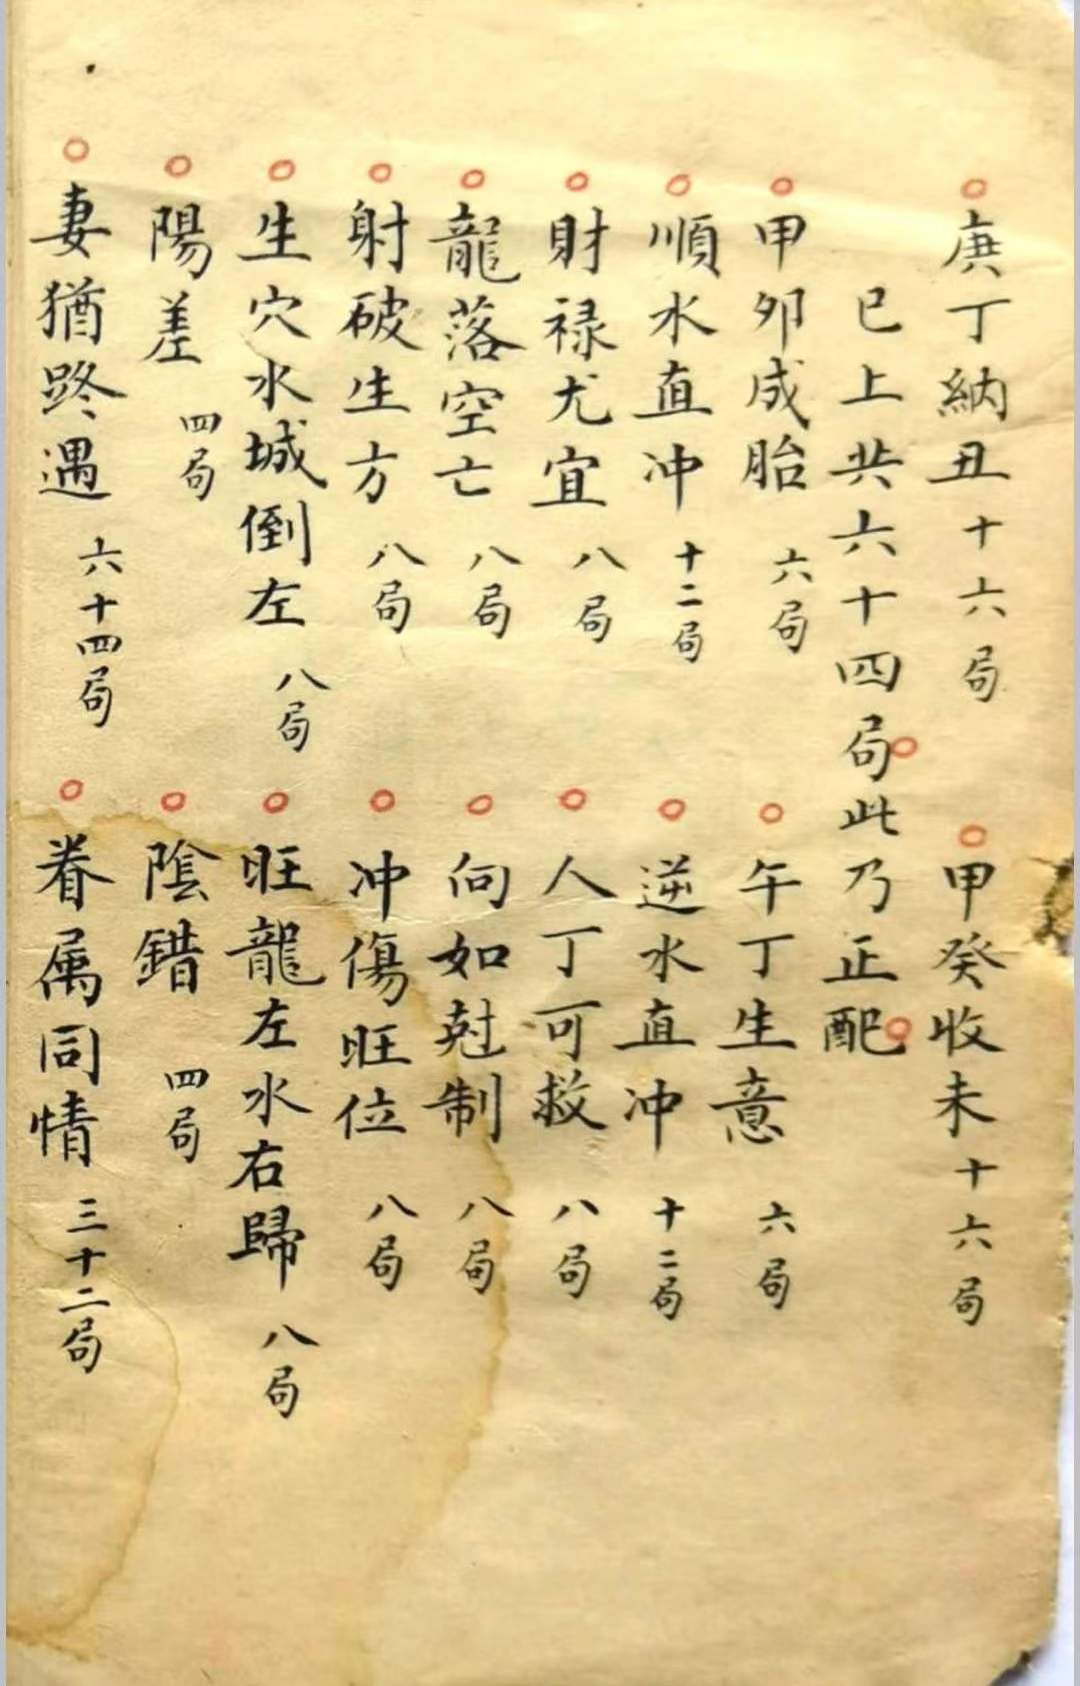 庚丁納丑十六局
甲癸收未十六局
已上共六十四局此乃正配
甲卯成胎六局
午丁生意六局
順水直冲十二局
逆水直冲十二局
財禄尤宜八局
人丁可救八局
龍落空亡八局
向如尅制八局
射破生方八局
冲傷旺位八局
生穴水城倒左八局
旺龍左水右歸八局
陽差四局
陰錯四局
妻猶路遇六十四局
眷属同情三十二局